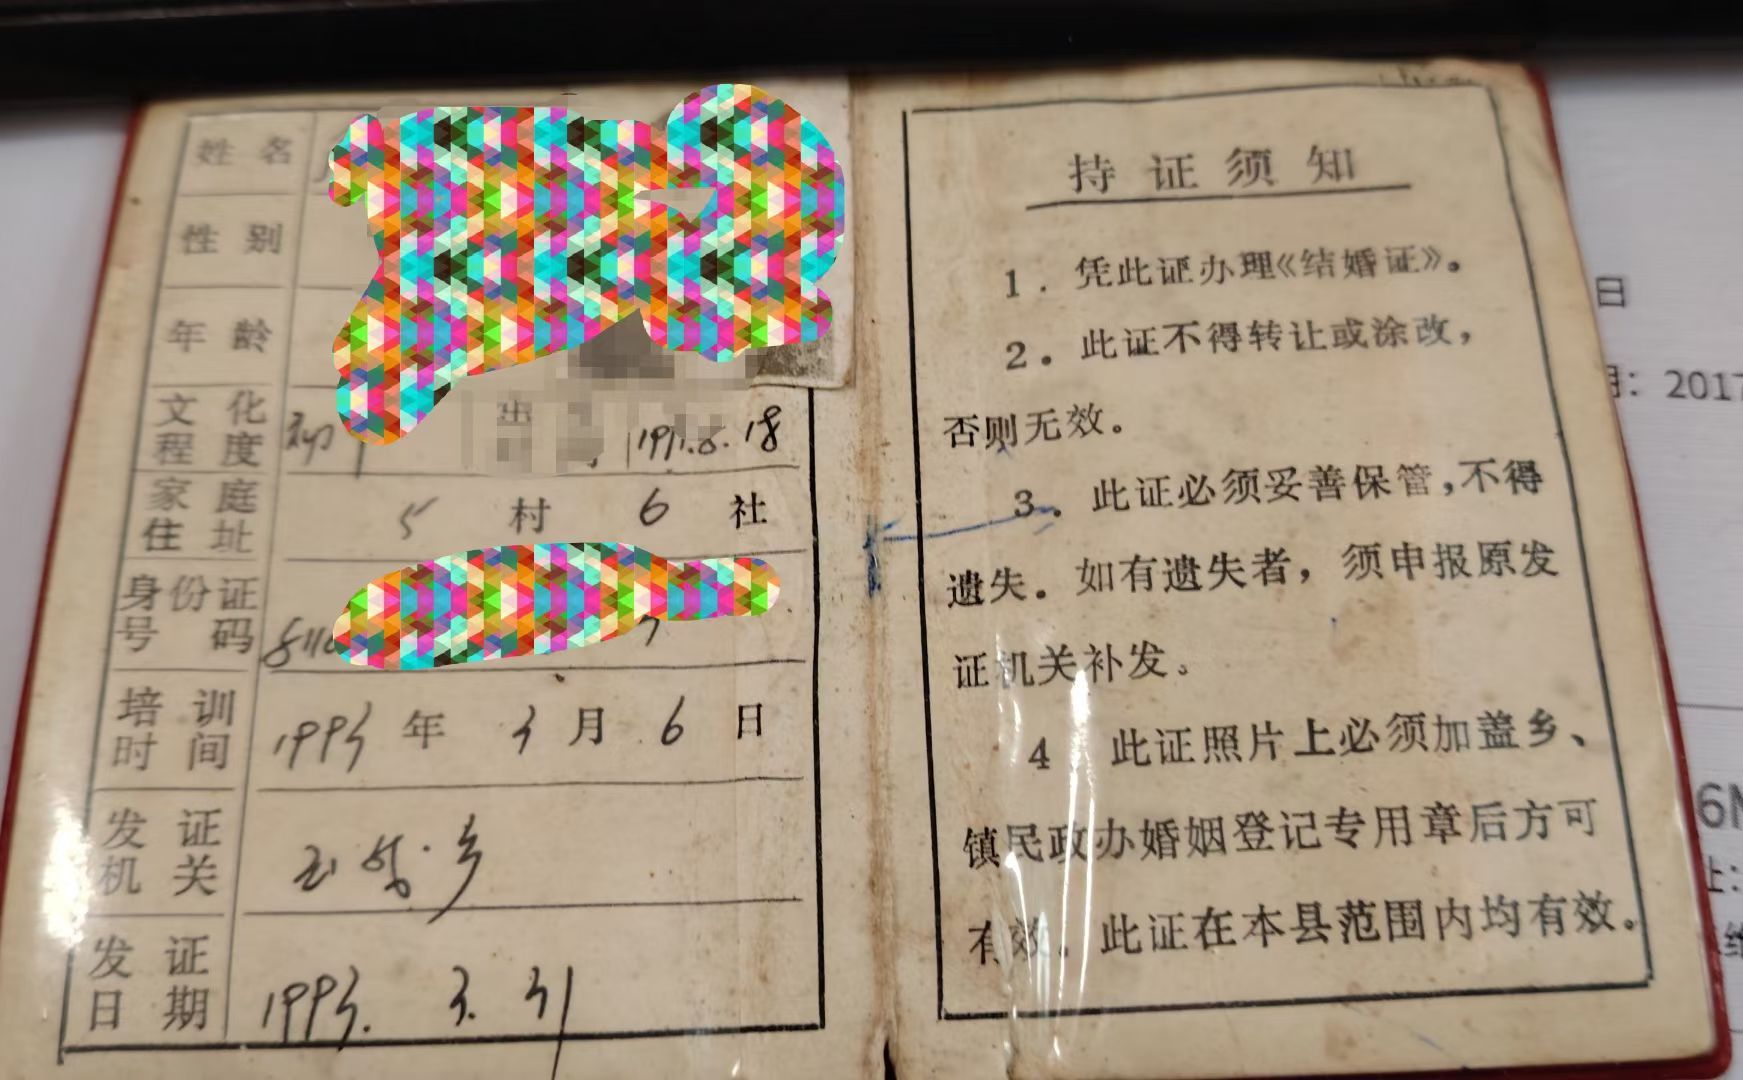 姓名
性别
年龄
文化程度 初
家庭住址 5 村 6 社
身份证号码
培训时间 1993 年 3 月 6 日
发证机关 乡
发证日期 1993. 3. 31
持证须知
1. 凭此证办理《结婚证》。
2. 此证不得转让或涂改，
否则无效。
3. 此证必须妥善保管,不得
遗失。如有遗失者，须申报原发
证机关补发。
4 此证照片上必须加盖乡、
镇民政办婚姻登记专用章后方可
有效。此证在本县范围内均有效。
日
: 2017